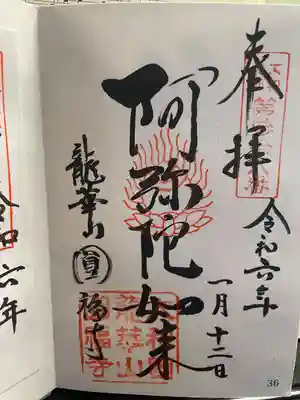 奉拝
令和六年
一月十二日
阿弥陀如来
龍華山
圓福寺
36
令和六年